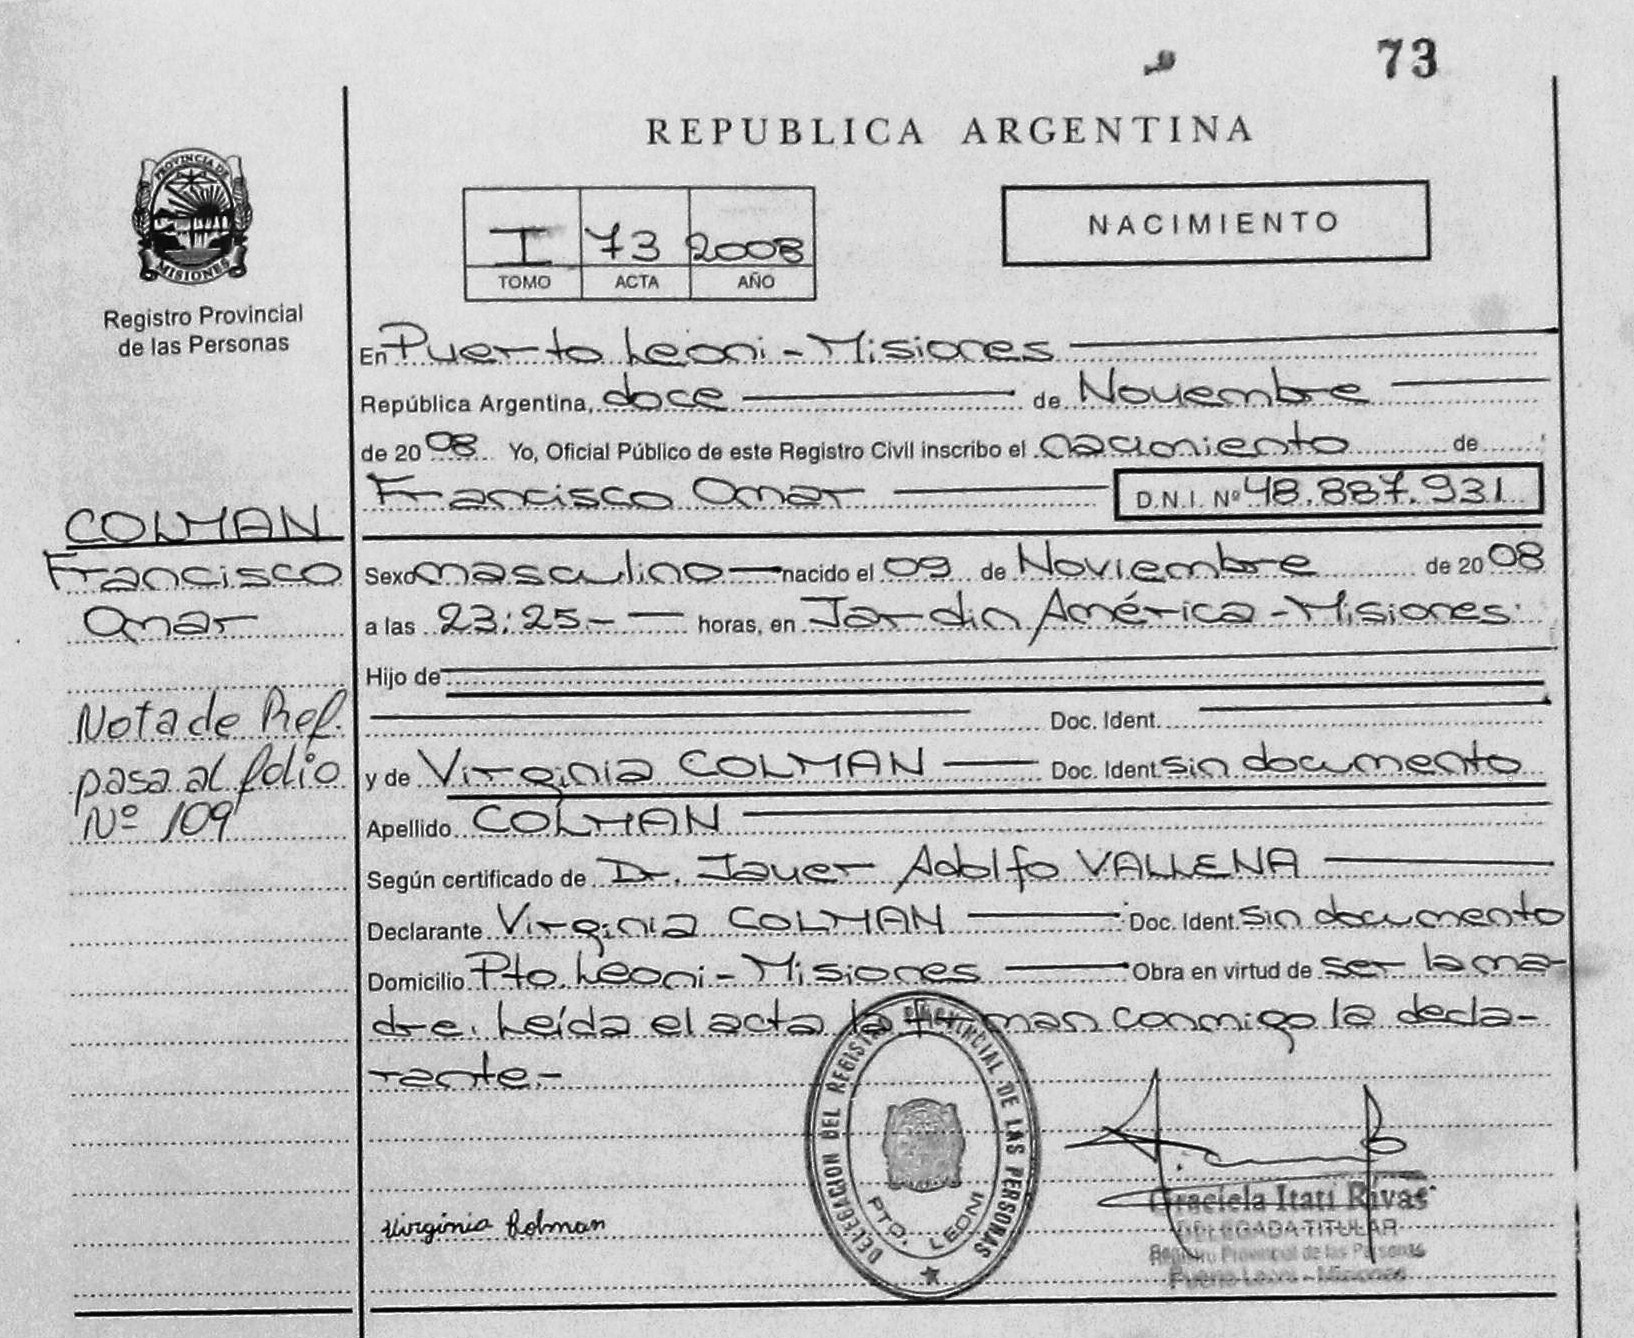 73
REPUBLICA ARGENTINA
PROVINCIA DE
MISIONES
Registro Provincial
de las Personas
I 73 2008
TOMO ACTA AÑO
NACIMIENTO
En Puerto Leoni - Misiones
República Argentina, doce de Noviembre
de 2008 Yo, Oficial Público de este Registro Civil inscribo el nacimiento de
Francisco Omar D.N.I. Nº 48.887.931
COLMAN
Francisco
Omar
Sexo masculino nacido el 09 de Noviembre de 2008
a las 23:25- horas, en Jardin América - Misiones
Hijo de
Doc. Ident.
Nota de Ref.
pasa al folio
Nº 109
y de Virginia COLMAN Doc. Ident. sin documento
Apellido COLMAN
Según certificado de Dr. Javier Adolfo VALLENA
Declarante Virginia COLMAN Doc. Ident. sin documento
Domicilio Pto. Leoni - Misiones Obra en virtud de ser la ma-
dre. Leída el acta la firman conmigo la decla-
rante.-
DELEGACION DEL REGISTRO PROVINCIAL DE LAS PERSONAS
PTO. LEONI
Virginia Colman
Graciela Itatí Rivas
DELEGADA TITULAR
Registro Provincial de las Personas
Puerto Leoni - Misiones